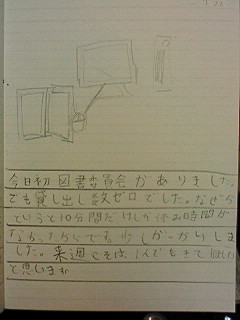 今日初 図書委員会がありました。
でも貸し出し数ゼロでした。なぜか
というと10分間だけしか休み時間が
なかったからです 少しがっかりしま
した。来週こそは、1人でもきてほしい
と思います